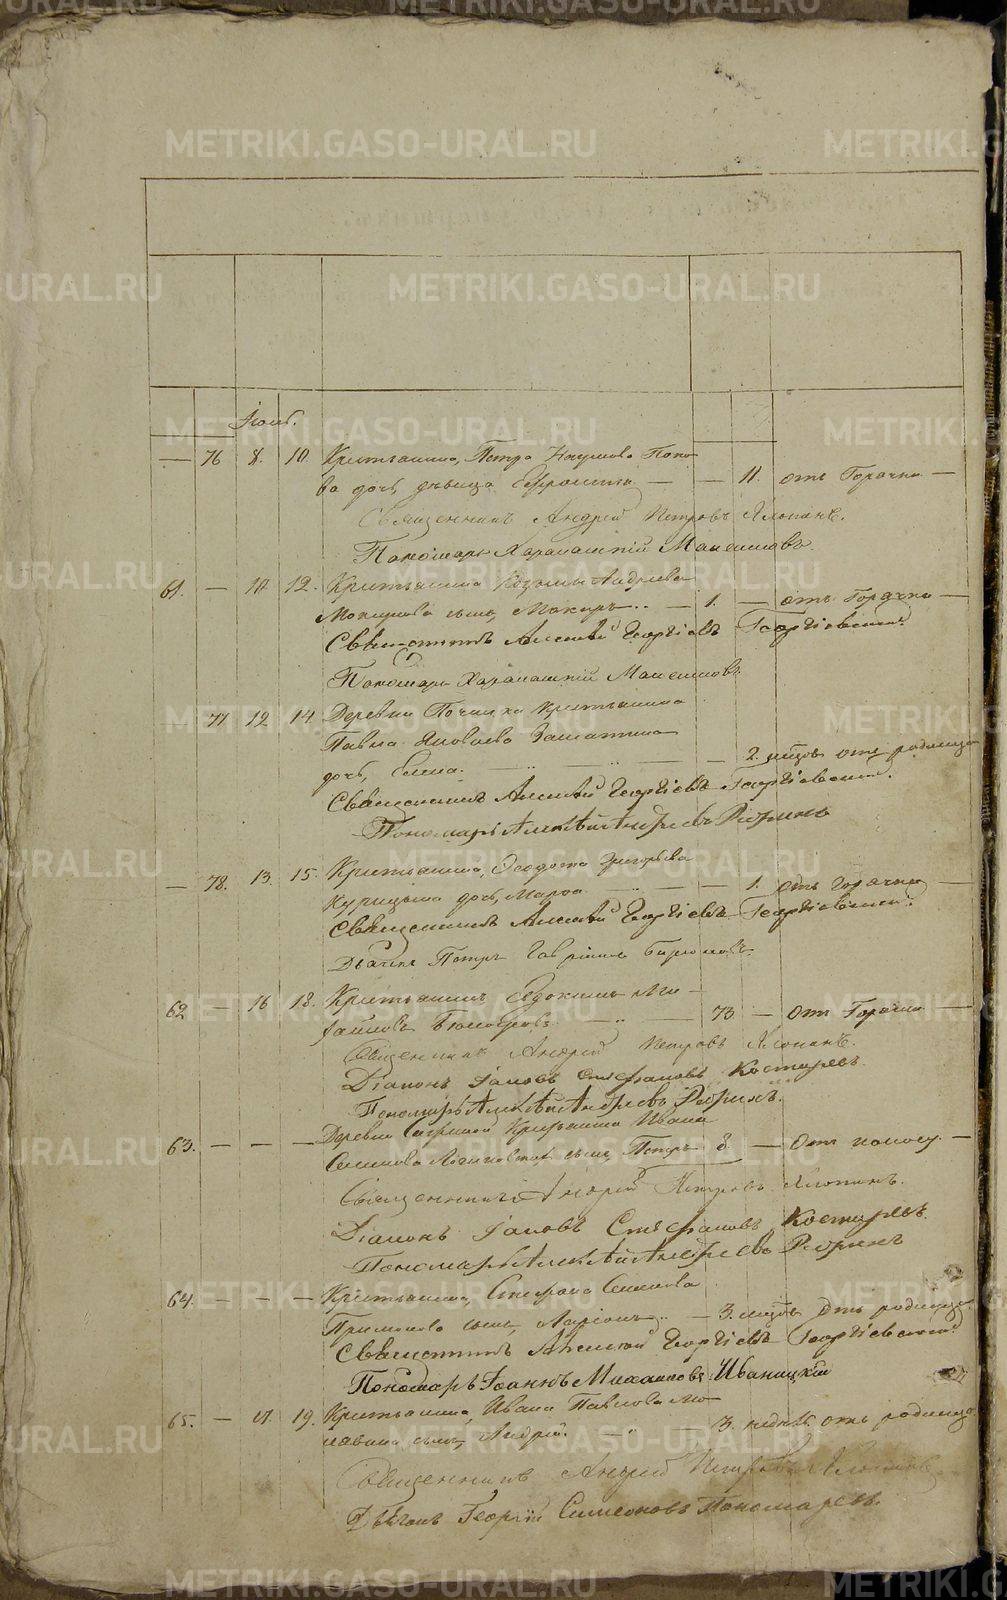 METRIKI.GASO-URAL.RU
Іюль.
— 76 8. 10. Крестьянина, Петра Наумова Попо-
ва дочь, девица Ефросинья — — 11. отъ Горячки —
Священникъ Андрей Петровъ Хлопинъ.
Пономарь Харалампій Максимовъ
61. — 10 12. Крестьянина Козьмы Андреева
сынъ, Макаръ — 1. — отъ Горячки —
Священникъ Алексѣй Георгіевъ Георгіевскій.
Пономарь Харалампій Максимовъ.
77 12 14. Деревни Починка Крестьянина
Павла Яковлева
дочь, Елена. — 2. мѣсяц. отъ родимца
Священникъ Алексѣй Георгіевъ Георгіевскій.
Пономарь Алексѣй Андреевъ
— 78. 13. 15. Крестьянина, Ѳеодота Григорьева
Курицына дочь, Марѳа — — 1. отъ горячки —
Священникъ Алексѣй Георгіевъ Георгіевскій.
Дьячекъ Петръ Гавріиловъ Бирюковъ.
62 — 16 18. Крестьянинъ Евдокимъ
— 73 — отъ Горячки —
Священникъ Андрей Петровъ Хлопинъ.
Діаконъ Іаковъ Стефановъ Костыревъ.
Пономарь Алексѣй Андреевъ
63. — — — Деревни Крестьянина Ивана
Семенова сынъ, Петръ 8. — Отъ поносу. —
Священникъ Андрей Петровъ Хлопинъ.
Діаконъ Іаковъ Стефановъ Костыревъ.
Пономарь Алексѣй Андреевъ
64. — — — Крестьянина, Стефана Семенова
сынъ, Ларіонъ. — 3. мѣсяц. Отъ родимца.
Священникъ Алексѣй Георгіевъ Георгіевскій
Пономарь Іоаннъ Михаиловъ Иваницкій
65. — 17. 19. Крестьянина, Ивана Павлова
сынъ, Андрей. — 3. недѣл. отъ родимца
Священникъ Андрей Петровъ Хлопинъ
Дьячекъ Георгій Симеоновъ Пономаревъ.